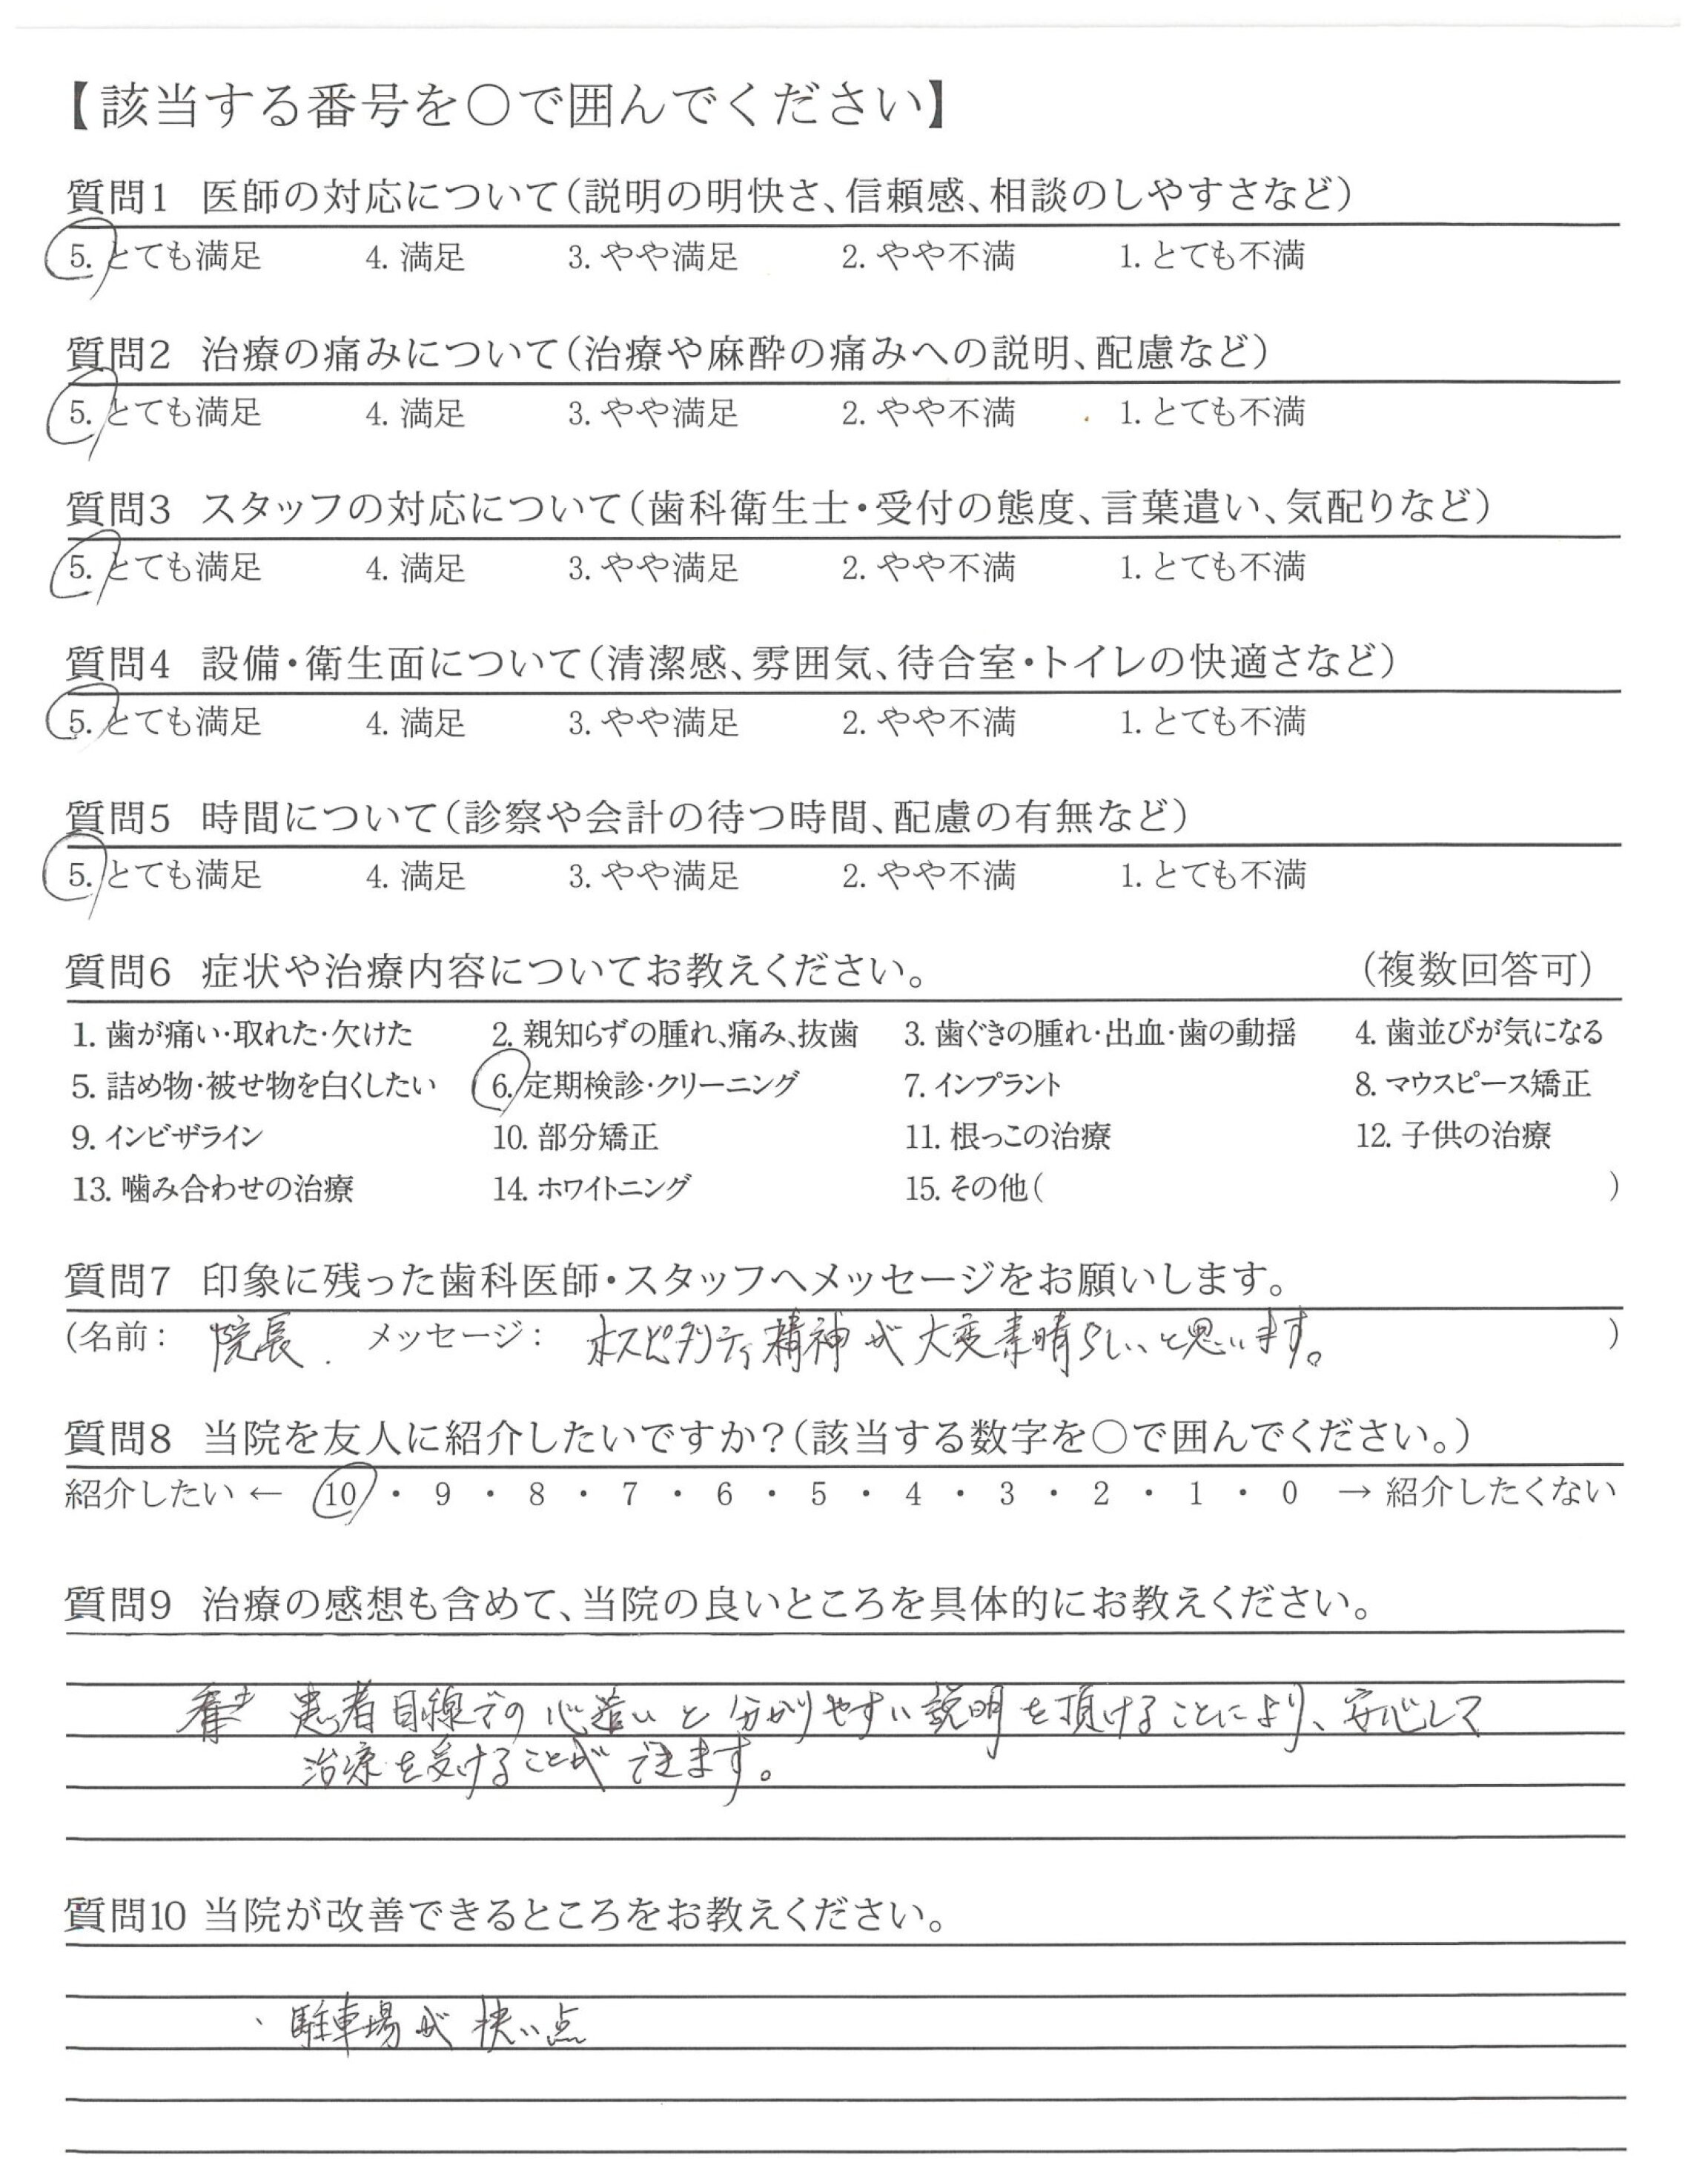 【該当する番号を○で囲んでください】
質問1 医師の対応について(説明の明快さ、信頼感、相談のしやすさなど)
5. とても満足 4. 満足 3. やや満足 2. やや不満 1. とても不満
質問2 治療の痛みについて(治療や麻酔の痛みへの説明、配慮など)
5. とても満足 4. 満足 3. やや満足 2. やや不満 1. とても不満
質問3 スタッフの対応について(歯科衛生士・受付の態度、言葉遣い、気配りなど)
5. とても満足 4. 満足 3. やや満足 2. やや不満 1. とても不満
質問4 設備・衛生面について(清潔感、雰囲気、待合室・トイレの快適さなど)
5. とても満足 4. 満足 3. やや満足 2. やや不満 1. とても不満
質問5 時間について(診察や会計の待つ時間、配慮の有無など)
5. とても満足 4. 満足 3. やや満足 2. やや不満 1. とても不満
質問6 症状や治療内容についてお教えください。 (複数回答可)
1. 歯が痛い・取れた・欠けた 2. 親知らずの腫れ、痛み、抜歯 3. 歯ぐきの腫れ・出血・歯の動揺 4. 歯並びが気になる
5. 詰め物・被せ物を白くしたい 6. 定期検診・クリーニング 7. インプラント 8. マウスピース矯正
9. インビザライン 10. 部分矯正 11. 根っこの治療 12. 子供の治療
13. 噛み合わせの治療 14. ホワイトニング 15. その他( )
質問7 印象に残った歯科医師・スタッフへメッセージをお願いします。
(名前: 院長. メッセージ: ホスピタリティ精神が大変素晴らしいと思います。 )
質問8 当院を友人に紹介したいですか?(該当する数字を○で囲んでください。)
紹介したい ← 10 ・ 9 ・ 8 ・ 7 ・ 6 ・ 5 ・ 4 ・ 3 ・ 2 ・ 1 ・ 0 → 紹介したくない
質問9 治療の感想も含めて、当院の良いところを具体的にお教えください。
患者目線での心遣いと分かりやすい説明を頂けることにより、安心して
治療を受けることができます。
質問10 当院が改善できるところをお教えください。
、駐車場が狭い点